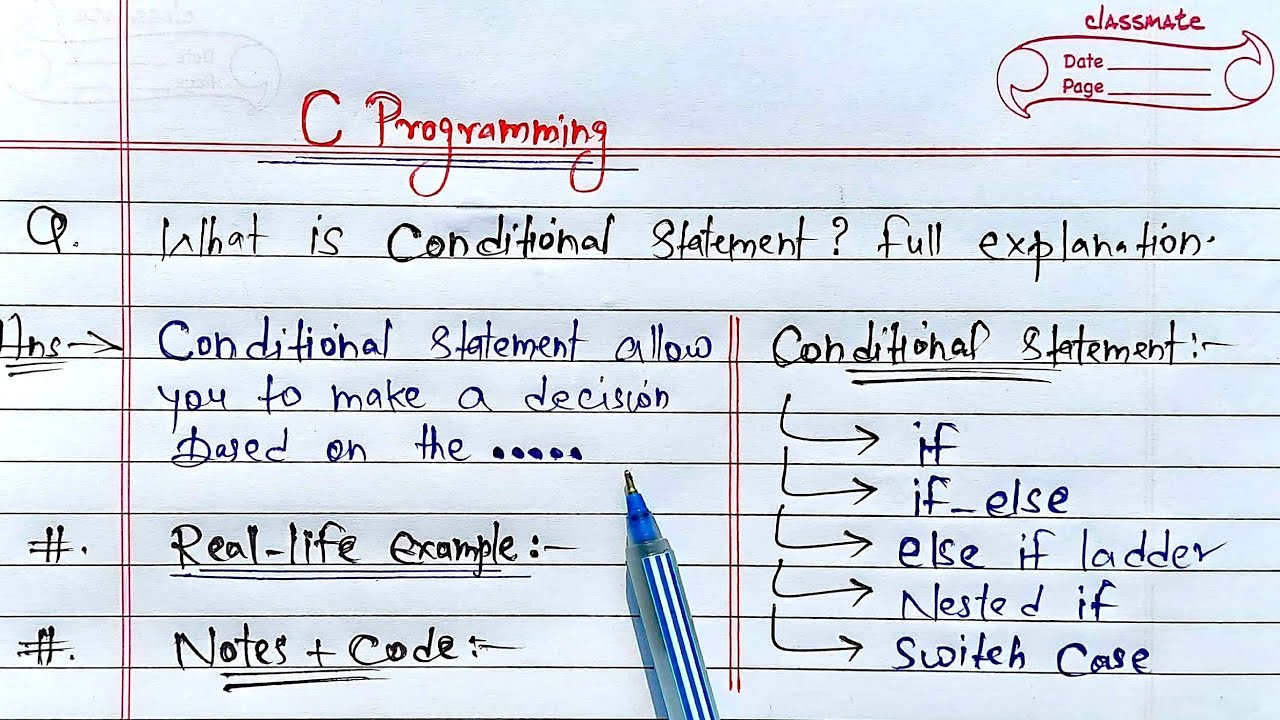 classmate
Date
Page
C Programming
Q. What is Conditional Statement? full explanation.
Ans→ Conditional Statement allow
you to make a decision
Based on the .....
#. Real-life example:-
#. Notes + Code:-
Conditional Statement:-
→ if
→ if-else
→ else if ladder
→ Nested if
→ Switch Case